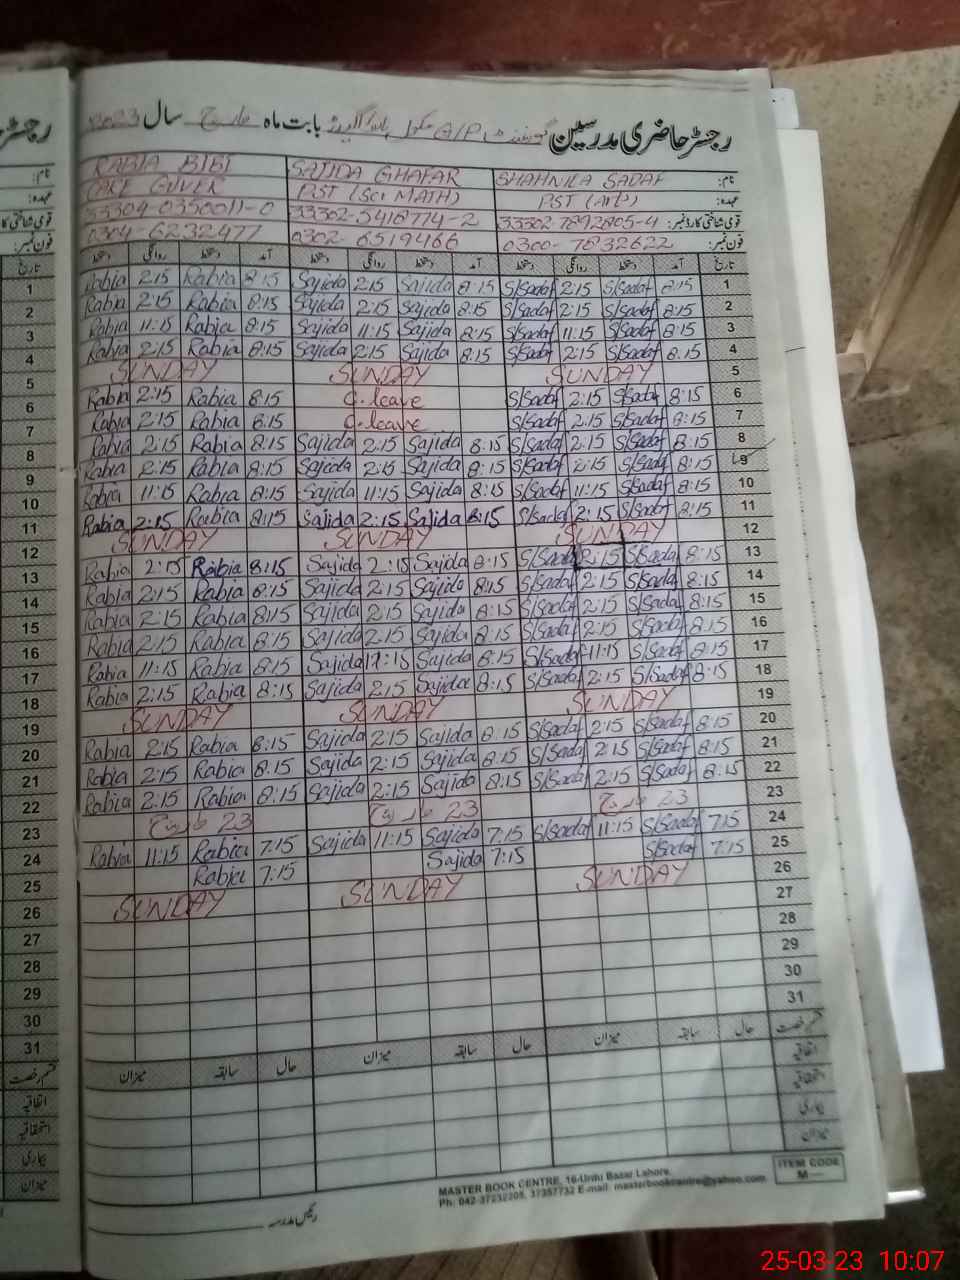 رجسٹر حاضری مدرسین گورنمنٹ G/P سکول بابت ماہ مارچ سال 2023
نام: SHAHNILA SADAF SAJIDA GHAFAR RABIA BIBI
عہدہ: PST (Arts) PST (Sci MATH) CARE GIVER
قومی شناختی کارڈ نمبر: 33302-7892805-4 33302-5416774-2 33304-0350011-0
فون نمبر: 0300-7832622 0302-6519466 0304-6232477
تاریخ آمد دستخط روانگی دستخط آمد دستخط روانگی دستخط آمد دستخط روانگی دستخط
1 8:15 S/Sadaf 2:15 S/Sadaf 8:15 Sajida 2:15 Sajida 8:15 Rabia 2:15 Rabia
2 8:15 S/Sadaf 2:15 S/Sadaf 8:15 Sajida 2:15 Sajida 8:15 Rabia 2:15 Rabia
3 8:15 S/Sadaf 11:15 S/Sadaf 8:15 Sajida 11:15 Sajida 8:15 Rabia 11:15 Rabia
4 8:15 S/Sadaf 2:15 S/Sadaf 8:15 Sajida 2:15 Sajida 8:15 Rabia 2:15 Rabia
5 SUNDAY SUNDAY SUNDAY
6 8:15 S/Sadaf 2:15 S/Sadaf C.leave 8:15 Rabia 2:15 Rabia
7 8:15 S/Sadaf 2:15 S/Sadaf C.leave 8:15 Rabia 2:15 Rabia
8 8:15 S/Sadaf 2:15 S/Sadaf 8:15 Sajida 2:15 Sajida 8:15 Rabia 2:15 Rabia
9 8:15 S/Sadaf 2:15 S/Sadaf 8:15 Sajida 2:15 Sajida 8:15 Rabia 2:15 Rabia
10 8:15 S/Sadaf 11:15 S/Sadaf 8:15 Sajida 11:15 Sajida 8:15 Rabia 11:15 Rabia
11 8:15 S/Sadaf 2:15 S/Sadaf 8:15 Sajida 2:15 Sajida 8:15 Rabia 2:15 Rabia
12 SUNDAY SUNDAY SUNDAY
13 8:15 S/Sadaf 2:15 S/Sadaf 8:15 Sajida 2:15 Sajida 8:15 Rabia 2:15 Rabia
14 8:15 S/Sadaf 2:15 S/Sadaf 8:15 Sajida 2:15 Sajida 8:15 Rabia 2:15 Rabia
15 8:15 S/Sadaf 2:15 S/Sadaf 8:15 Sajida 2:15 Sajida 8:15 Rabia 2:15 Rabia
16 8:15 S/Sadaf 2:15 S/Sadaf 8:15 Sajida 2:15 Sajida 8:15 Rabia 2:15 Rabia
17 8:15 S/Sadaf 11:15 S/Sadaf 8:15 Sajida 11:15 Sajida 8:15 Rabia 11:15 Rabia
18 8:15 S/Sadaf 2:15 S/Sadaf 8:15 Sajida 2:15 Sajida 8:15 Rabia 2:15 Rabia
19 SUNDAY SUNDAY SUNDAY
20 8:15 S/Sadaf 2:15 S/Sadaf 8:15 Sajida 2:15 Sajida 8:15 Rabia 2:15 Rabia
21 8:15 S/Sadaf 2:15 S/Sadaf 8:15 Sajida 2:15 Sajida 8:15 Rabia 2:15 Rabia
22 8:15 S/Sadaf 2:15 S/Sadaf 8:15 Sajida 2:15 Sajida 8:15 Rabia 2:15 Rabia
23 23 مارچ 23 مارچ 23 مارچ
24 7:15 S/Sadaf 11:15 S/Sadaf 7:15 Sajida 11:15 Sajida 7:15 Rabia 11:15 Rabia
25 7:15 S/Sadaf 7:15 Sajida 7:15 Rabia
26 SUNDAY SUNDAY SUNDAY
27
28
29
30
31
قسم رخصت حال سابقہ میزان حال سابقہ میزان حال سابقہ میزان
اتفاقیہ
استحقاقیہ
بیماری
میزان
رئیس مدرسہ
MASTER BOOK CENTRE, 16-Urdu Bazar Lahore.
Ph: 042-37232205, 37357732 E-mail: masterbookcentre@yahoo.com
ITEM CODE
M—
25-03-23 10:07